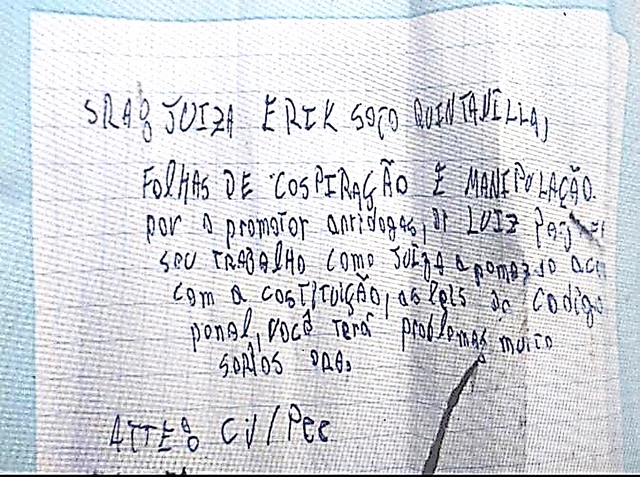 SRAº JUIZA ERIK SOÇO QUINTANILLA,
FOLHAS DE COSPIRAÇÃO E MANIPULAÇÃO.
por o promotor antidogas, LUIZ
seu TRABALHO como JUÍZA a
com a COSTITUIÇÃO, as leis do codigo
penal, você terá problemas muito
serios sra.
ATTEº CV/Pcc